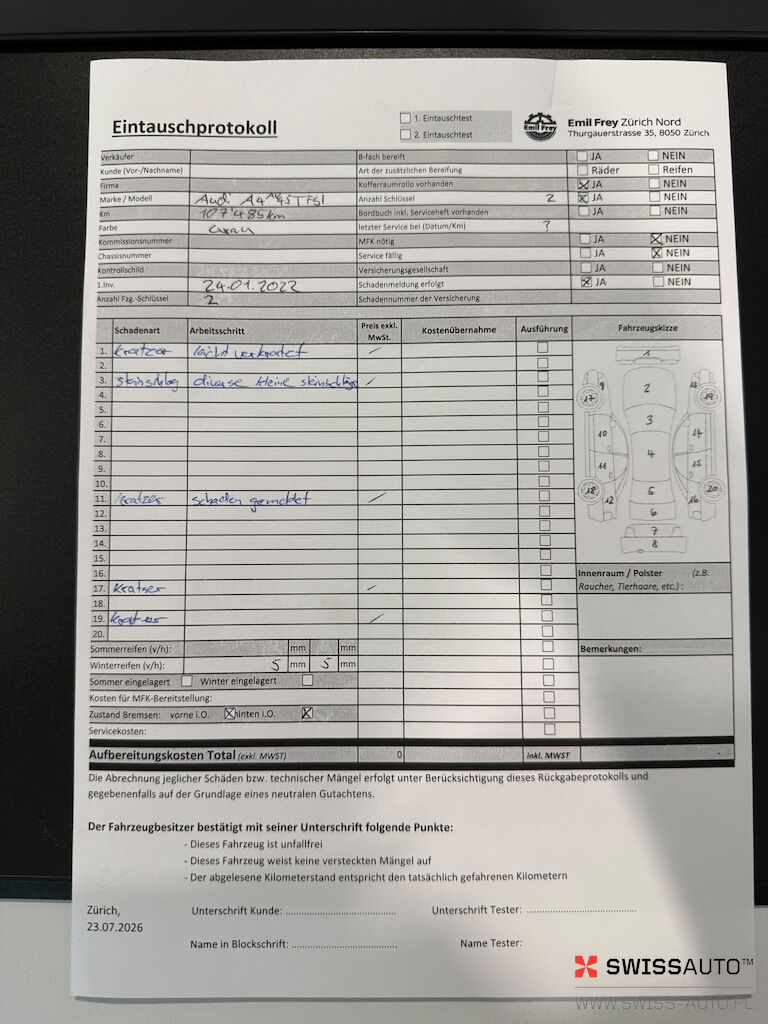 Eintauschprotokoll
1. Eintauschtest
2. Eintauschtest
Emil Frey
Emil Frey Zürich Nord
Thurgauerstrasse 35, 8050 Zürich
Verkäufer
8-fach bereift JA NEIN
Kunde (Vor-/Nachname)
Art der zusätzlichen Bereifung Räder Reifen
Firma
Kofferraumrollo vorhanden JA NEIN
Marke / Modell Audi A4 45TFSI
Anzahl Schlüssel 2 JA NEIN
Km 107'485km
Bordbuch inkl. Serviceheft vorhanden JA NEIN
Farbe Grau
letzter Service bei (Datum/Km) ?
Kommissionsnummer
MFK nötig JA NEIN
Chassisnummer
Service fällig JA NEIN
Kontrollschild
Versicherungsgesellschaft JA NEIN
1.Inv. 24.01.2022
Schadenmeldung erfolgt JA NEIN
Anzahl Fzg.-Schlüssel 2
Schadennummer der Versicherung
Schadenart Arbeitsschritt Preis exkl. MwSt. Kostenübernahme Ausführung Fahrzeugskizze
1. Kratzer leicht verkratzt
2.
3. Steinschlag diverse kleine steinschläge
4.
5.
6.
7.
8.
9.
10.
11. Kratzer schaden gemeldet
12.
13.
14.
15.
16.
17. Kratzer
18.
19. Kratzer
20.
1
2
3
4
5
6
7
8
9
10
11
12
13
14
15
16
17
18
19
20
Innenraum / Polster (z.B.
Raucher, Tierhaare, etc.) :
Sommerreifen (v/h): mm mm
Bemerkungen:
Winterreifen (v/h): 5 mm 5 mm
Sommer eingelagert Winter eingelagert
Kosten für MFK-Bereitstellung:
Zustand Bremsen: vorne i.O. hinten i.O.
Servicekosten:
Aufbereitungskosten Total (exkl. MWST) 0 inkl. MWST -
Die Abrechnung jeglicher Schäden bzw. technischer Mängel erfolgt unter Berücksichtigung dieses Rückgabeprotokolls und
gegebenenfalls auf der Grundlage eines neutralen Gutachtens.
Der Fahrzeugbesitzer bestätigt mit seiner Unterschrift folgende Punkte:
- Dieses Fahrzeug ist unfallfrei
- Dieses Fahrzeug weist keine versteckten Mängel auf
- Der abgelesene Kilometerstand entspricht den tatsächlich gefahrenen Kilometern
Zürich,
23.07.2026
Unterschrift Kunde: ....................................
Unterschrift Tester: ....................................
Name in Blockschrift: ..................................
Name Tester:
SWISSAUTO™
WWW.SWISS-AUTO.PL